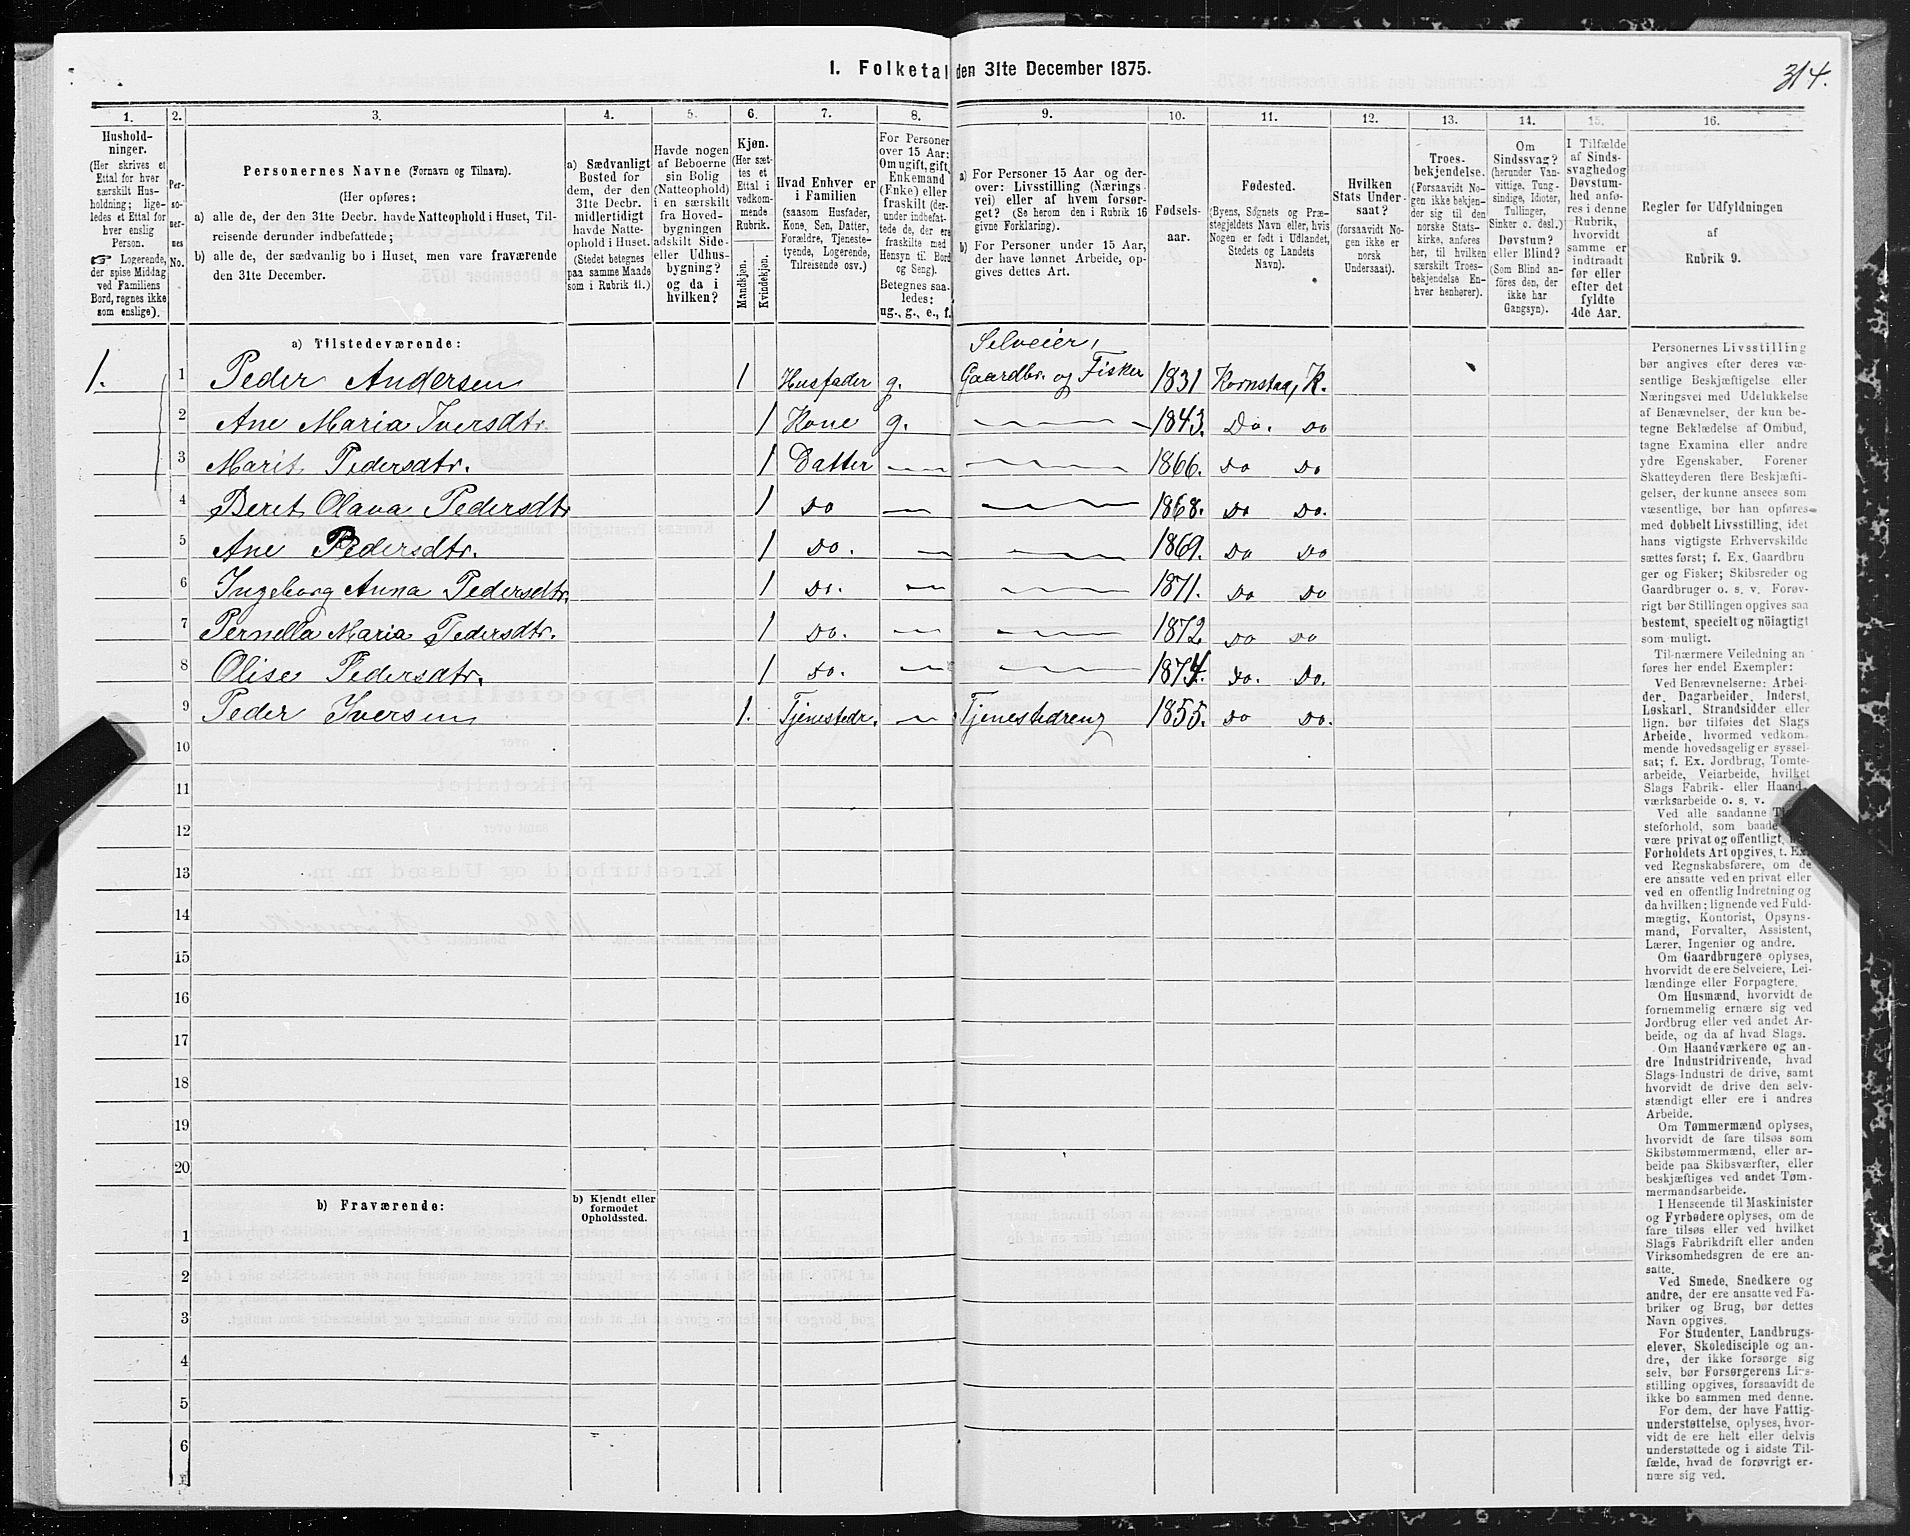 314.
I. Folketal den 31te December 1875.
1.
2.
3.
4.
5.
6.
7.
8.
9.
10.
11.
12.
13.
14.
15.
16.
Hushold-
ninger.
(Her skrives et
Ettal for hver
særskilt Hus-
holdning; lige-
ledes et Ettal for
hver enslig
Person.
☞ Logerende,
der spise Middag
ved Familiens
Bord, regnes ikke
som enslige).
Per-
so-
ner-
nes
No.
Personernes Navne (Fornavn og Tilnavn).
(Her opføres:
a) alle de, der den 31te Decbr. havde Natteophold i Huset, Til-
reisende derunder indbefattede;
b) alle de, der sædvanlig bo i Huset, men vare fraværende
den 31te December.
a) Sædvanligt
Bosted for
dem, der den
31te Decbr.
midlertidigt
havde Natte-
ophold i Huset.
(Stedet betegnes
paa samme Maade
som i Rubrik 11.)
Havde nogen
af Beboerne
sin Bolig
(Natteophold)
i en særskilt
fra Hoved-
bygningen
adskilt Side-
eller Udhus-
bygning?
og da i
hvilken?
Kjøn.
(Her sæt-
tes et
Ettal i
vedkom-
mende
Rubrik.
Mandkjøn.
Kvindekjøn.
Hvad Enhver er
i Familien
(saasom Husfader,
Kone, Søn, Datter,
Forældre, Tjeneste-
tyende, Logerende,
Tilreisende osv.)
For Personer
over 15 Aar:
Om ugift, gift,
Enkemand
(Enke) eller
fraskilt (der-
under indbefat-
tede de, der ere
fraskilte med
Hensyn til Bord
og Seng).
Betegnes saa-
ledes:
ug., g., e., f.
a) For Personer 15 Aar og der-
over: Livsstilling (Nærings-
vei) eller af hvem forsør-
get? (Se herom den i Rubrik 16
givne Forklaring).
b) For Personer under 15 Aar,
der have lønnet Arbeide, op-
gives dettes Art.
Fødsels-
aar.
Fødested.
(Byens, Sognets og Præ-
stegjeldets Navn eller, hvis
Nogen er født i Udlandet,
Stedets og Landets
Navn).
Hvilken
Stats Under-
saat?
(forsaavidt No-
gen ikke er
norsk
Undersaat).
Troes-
bekjendelse.
(Forsaavidt No-
gen ikke bekjen-
der sig til den
norske Stats-
kirke, anføres
her, til hvilken
særskilt Troes-
bekjendelse En-
hver henhører).
Om
Sindssvag?
(herunder Van-
vittige, Tung-
sindige, Idioter,
Tullinger,
Sinker o. desl.)
Døvstum?
eller Blind?
(Som Blind an-
føres den, der
ikke har
Gangsyn).
I Tilfælde
af Sinds-
svaghed og
Døvstum-
hed anfø-
res i denne
Rubrik,
hvorvidt
samme er
indtraadt
før eller
efter det
fyldte
4de Aar.
Regler for Udfyldningen
af
Rubrik 9.
a) Tilstedeværende:
Selveier,
1. 1 Peder Andersen 1 Husfader g. Gaardbr. og Fisker 1831 Kornstag, K.
2 Ane Maria Iversdtr. 1 Kone g. 1843. Do. Do
3 Marit Pedersdtr. 1 Datter 1866. Do Do
4 Beret Olava Pedersdtr 1 Do 1868. Do Do.
5 Ane Pedersdtr. 1 Do. 1869. Do Do
6 Ingeborg Anna Pedersdtr. 1 Do. 1871. Do Do
7 Pernella Maria Pedersdtr. 1 Do. 1872 Do Do
8 Olise Pedersdtr. 1 Do. 1874. Do. Do.
9 Peder Iversen 1. Tjenestedr. Tjenestedreng 1855. Do Do.
10
11
12
13
14
15
16
17
18
19
20
b) Fraværende:
b) Kjendt eller
formodet
Opholdssted.
1
2
3
4
5
6
Personernes Livsstilling
bør angives efter deres væ-
sentlige Beskjæftigelse eller
Næringsvei med Udelukkelse
af Benævnelser, der kun be-
tegne Beklædelse af Ombud,
tagne Examina eller andre
ydre Egenskaber. Forener
Skatteyderen flere Beskjæfti-
gelser, der kunne ansees som
væsentlige, bør han opføres
med dobbelt Livsstilling, idet
hans vigtigste Erhvervskilde
sættes først; f. Ex. Gaardbru
ger og Fisker; Skibsreder og
Gaardbruger o. s. v. Forøv-
rigt bør Stillingen opgives saa
bestemt, specielt og nøiagtigt
som muligt.
Til-nærmere Veiledning an
føres her endel Exempler:
Ved Benævnelserne: Arbei-
der, Dagarbeider, Inderst,
Løskarl, Strandsidder eller
lign. bør tilføies det Slags
Arbeide, hvormed vedkom-
mende hovedsagelig er syssel-
sat; f. Ex. Jordbrug, Tomte-
arbeide, Veiarbeide, hvilket
Slags Fabrik- eller Haand-
værksarbeide o. s. v.
Ved alle saadanne
steforhold, som baade
være privat og offentligt,
Forholdets Art opgives, t. Ex.
ved Regnskabsførere, om de
ere ansatte ved en privat eller
ved en offentlig Indretning og
da hvilken; lignende ved Fuld-
mægtig, Kontorist, Opsyns-
mand, Forvalter, Assistent,
Lærer, Ingeniør og andre.
Om Gaardbrugere oplyses,
hvorvidt de ere Selveiere, Lei-
lændinge eller Forpagtere.
Om Husmænd, hvorvidt de
fornemmelig ernære sig ved
Jordbrug eller ved andet Ar-
beide, og da af hvad Slags.
Om Haandværkere og an-
dre Industridrivende, hvad
Slags Industri de drive, samt
hvorvidt de drive den selv-
stændigt eller ere i andres
Arbeide.
Om Tømmermænd oplyses,
hvorvidt de fare tilsøs som
Skibstømmermænd, eller ar-
beide paa Skibsværfter, eller
beskjæftiges ved andet Tøm-
mermandsarbeide.
I Henseende til Maskinister
og Fyrbødere oplyses, om de
fare tilsøs eller ved hvilket
Slags Fabrikdrift eller anden
Virksomhedsgren de ere an-
satte.
Ved Smede, Snedkere og
andre, der ere ansatte ved Fa-
briker og Brug, bør dettes
Navn opgives.
For Studenter, Landbrugs-
elever, Skoledisciple og an-
dre, der ikke forsørge sig
selv, bør Forsørgerens Livs-
stilling opgives, forsaavidt de
ikke bo sammen med denne.
For dem, der have Fattig-
understøttelse, oplyses, hvor-
vidt de ere helt eller delvis
understøttede og i sidste Til-
fælde, hvad de forøvrigt er-
nære sig ved.